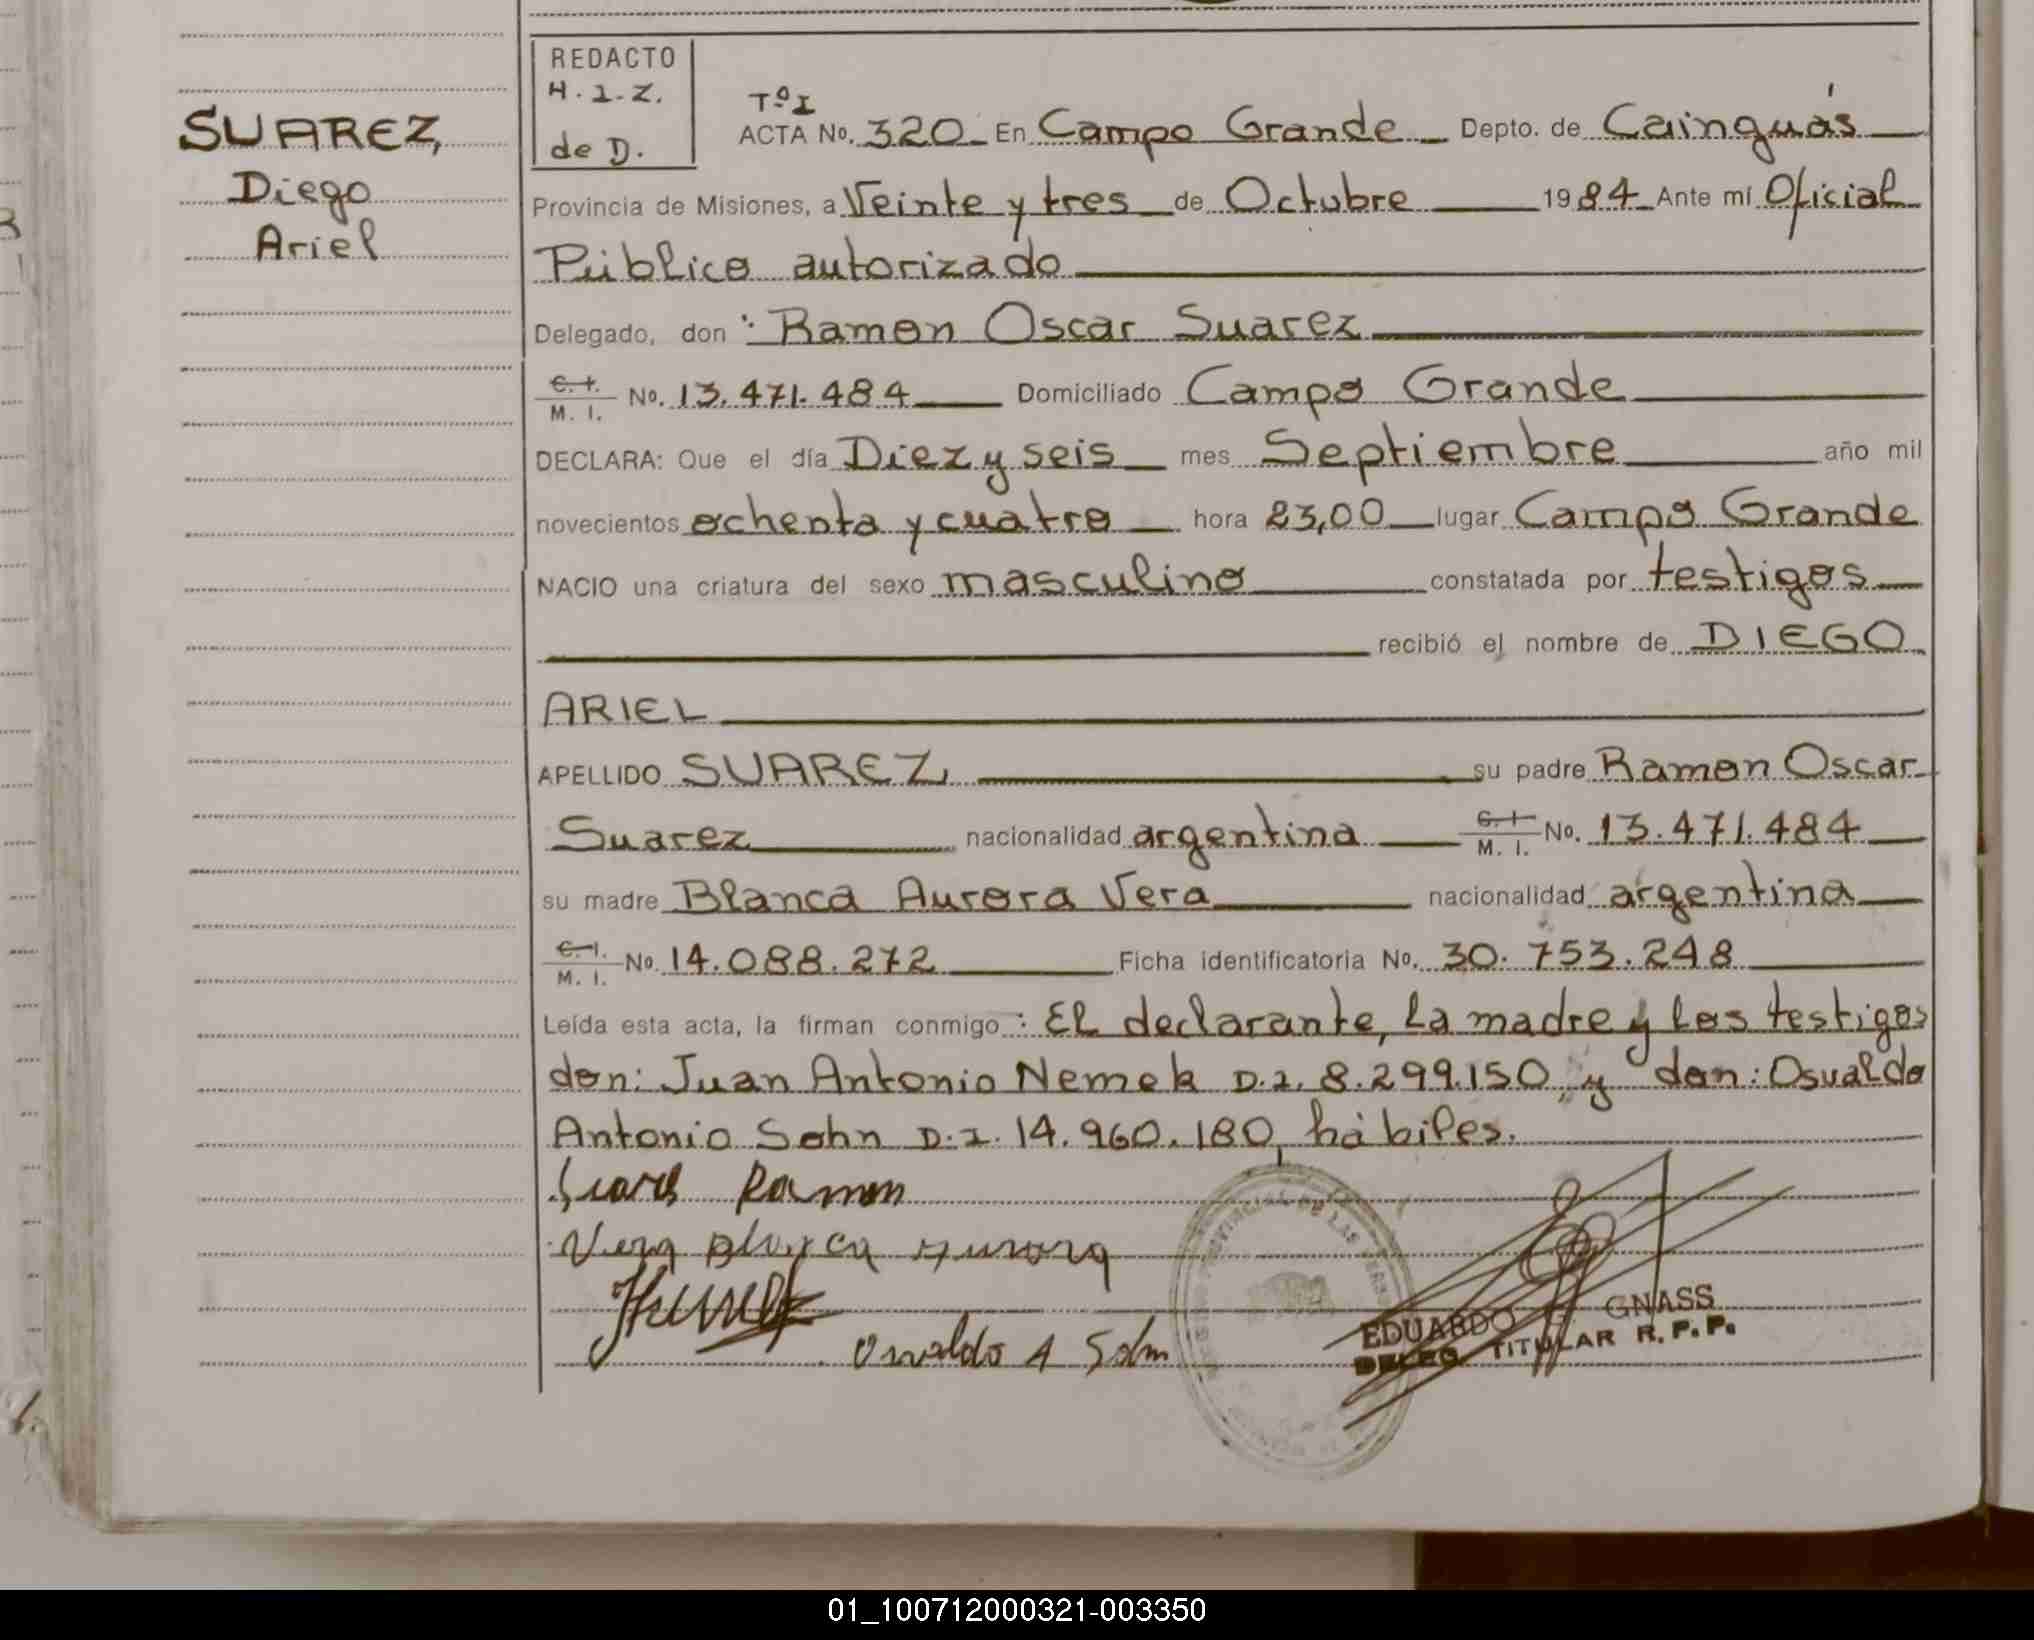 SUAREZ,
Diego
Ariel
REDACTO
H.I.Z.
de D.
Tº I
ACTA No. 320 En Campo Grande Depto. de Cainguás
Provincia de Misiones, a Veinte y tres de Octubre 1984 Ante mí Oficial
Público autorizado
Delegado, don : Ramon Oscar Suarez
C. I.
M. I. No. 13.471.484 Domiciliado Campo Grande
DECLARA: Que el día Diez y seis mes Septiembre año mil
novecientos ochenta y cuatro hora 23,00 lugar Campo Grande
NACIO una criatura del sexo masculino constatada por testigos
recibió el nombre de DIEGO
ARIEL
APELLIDO SUAREZ su padre Ramon Oscar
Suarez nacionalidad argentina C. I. M. I. No. 13.471.484
su madre Blanca Aurora Vera nacionalidad argentina
C. I. M. I. No. 14.088.272 Ficha identificatoria No. 30.753.248
Leída esta acta, la firman conmigo : El declarante, la madre y los testigos
don: Juan Antonio Nemek D.I. 8.299.150, y don: Osvaldo
Antonio Sohn D.I. 14.960.180, hábiles.
Suares Ramon
Vera Blanca Aurora
Osvaldo A Sohn
EDUARDO GNASS
DELEG. TITULAR R.P.P.
01_100712000321-003350